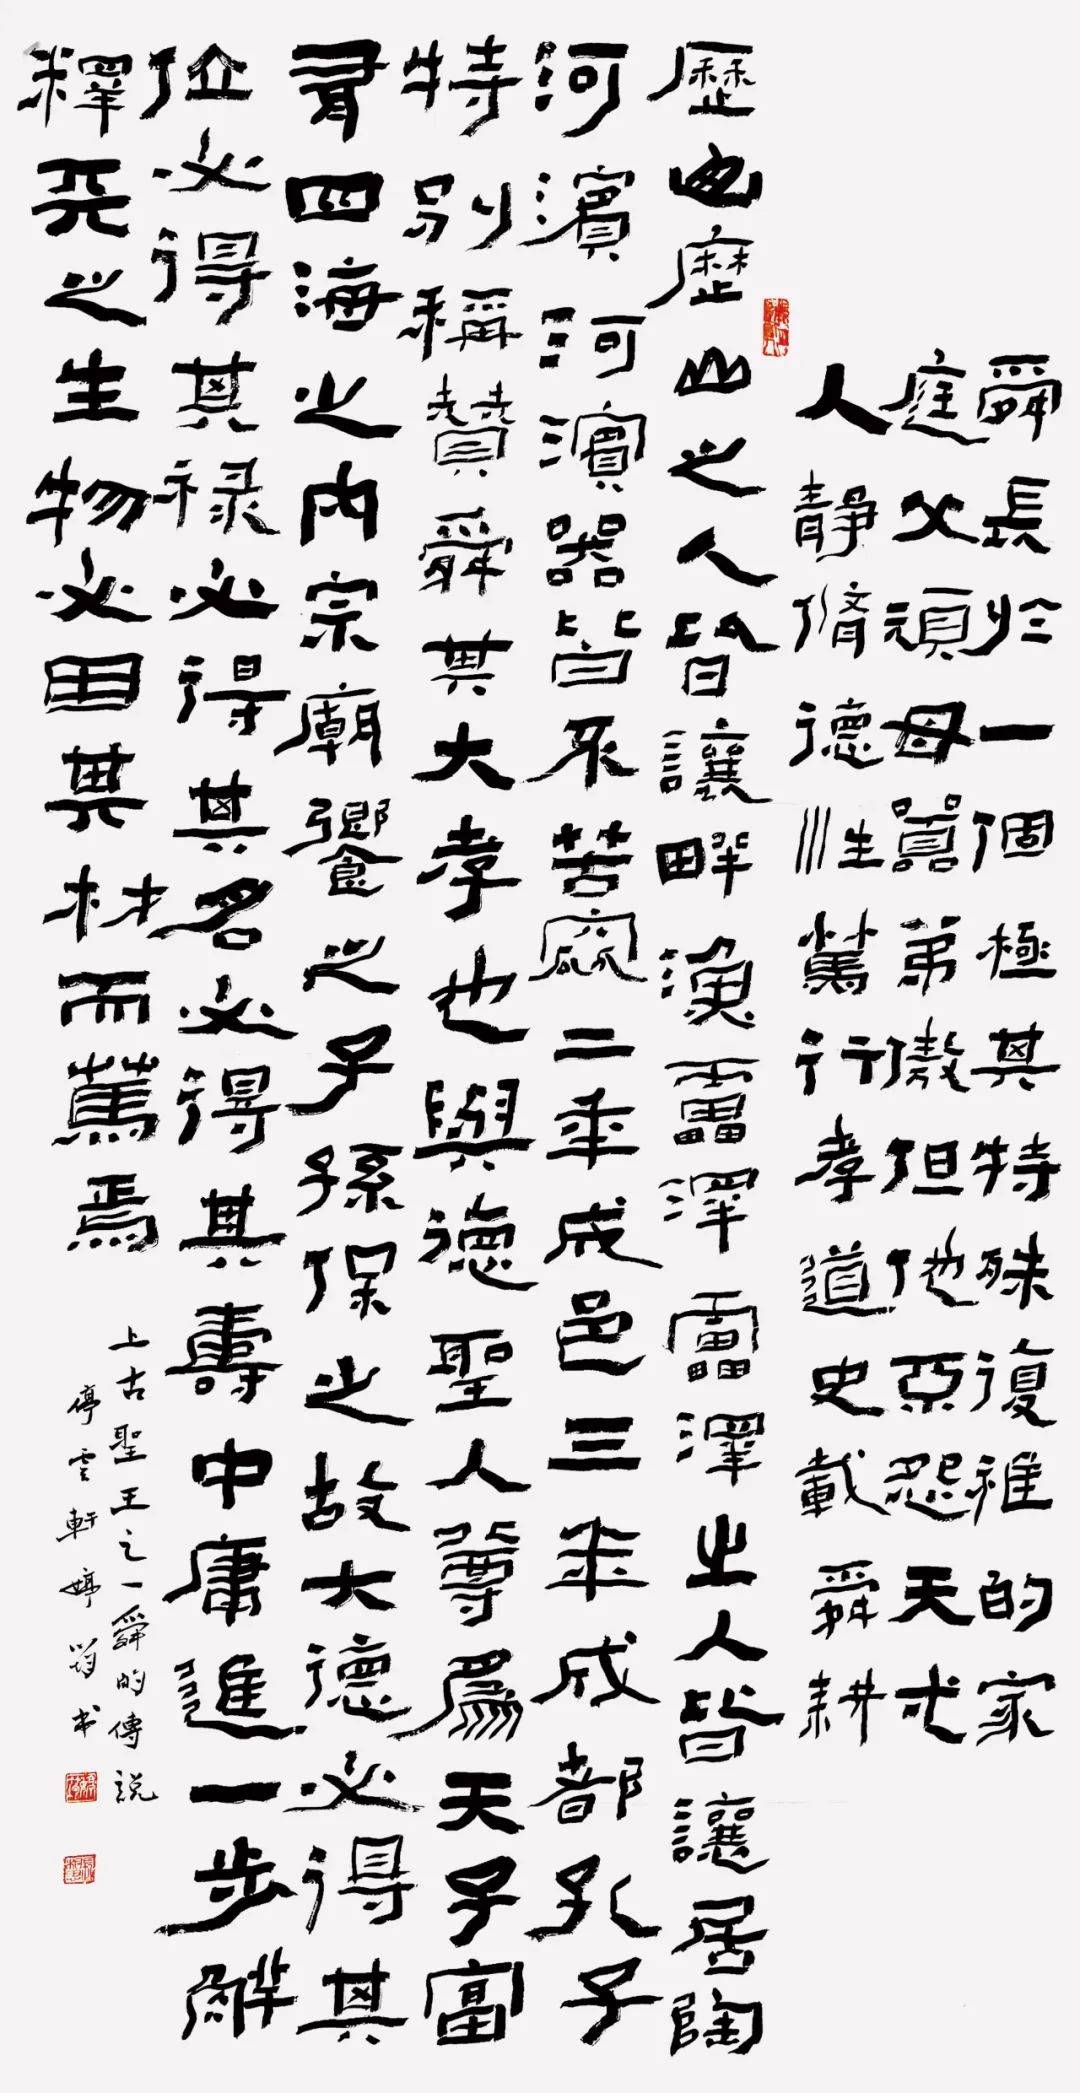 舜長於一個極其特殊復雜的家
庭父頑母嚚弟傲但他亞怨天尤
人靜脩德性篤行孝道史載舜耕
歷山歷山之人皆讓畔漁雷澤雷澤之人皆讓居陶
河濱河濱器皆不苦窳二年成邑三年成都孔子
特別稱贊舜其大孝也與德聖人尊爲天子富
有四海之内宗廟饗之子孫保之故大德必得其
位必得其祿必得其名必得其壽中庸進一步解
釋天之生物必因其材而篤焉
上古聖王之一舜的傳說
停雲軒婷筠书